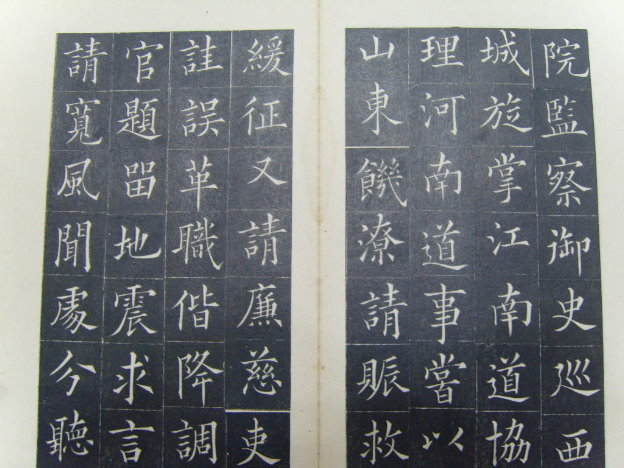 院監察御史巡西
城旋掌江南道協
理河南道事嘗以
山東饑潦請賑救
緩征又請廉慈吏
詿誤革職偕降調
官題畱地震求言
請寬風聞處分聽